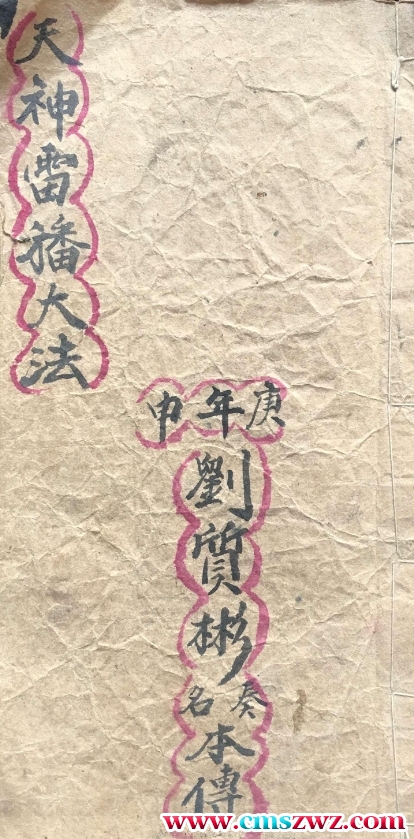 天神雷大法
庚年申
劉質彬
奏名
本傳
www.cmszwz.com